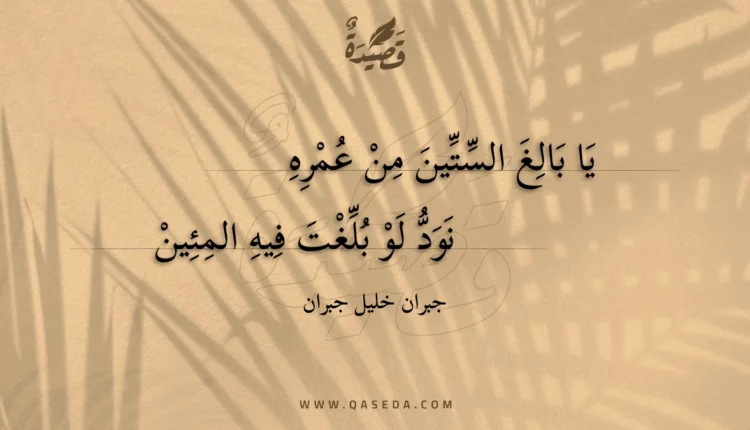 قَصِيدَةٌ
يَا بَالِغَ السِّتِّينَ مِنْ عُمْرِهِ
نَوَدُّ لَوْ بُلِّغْتَ فِيهِ المِئِينْ
جبران خليل جبران
WWW.QASEDA.COM